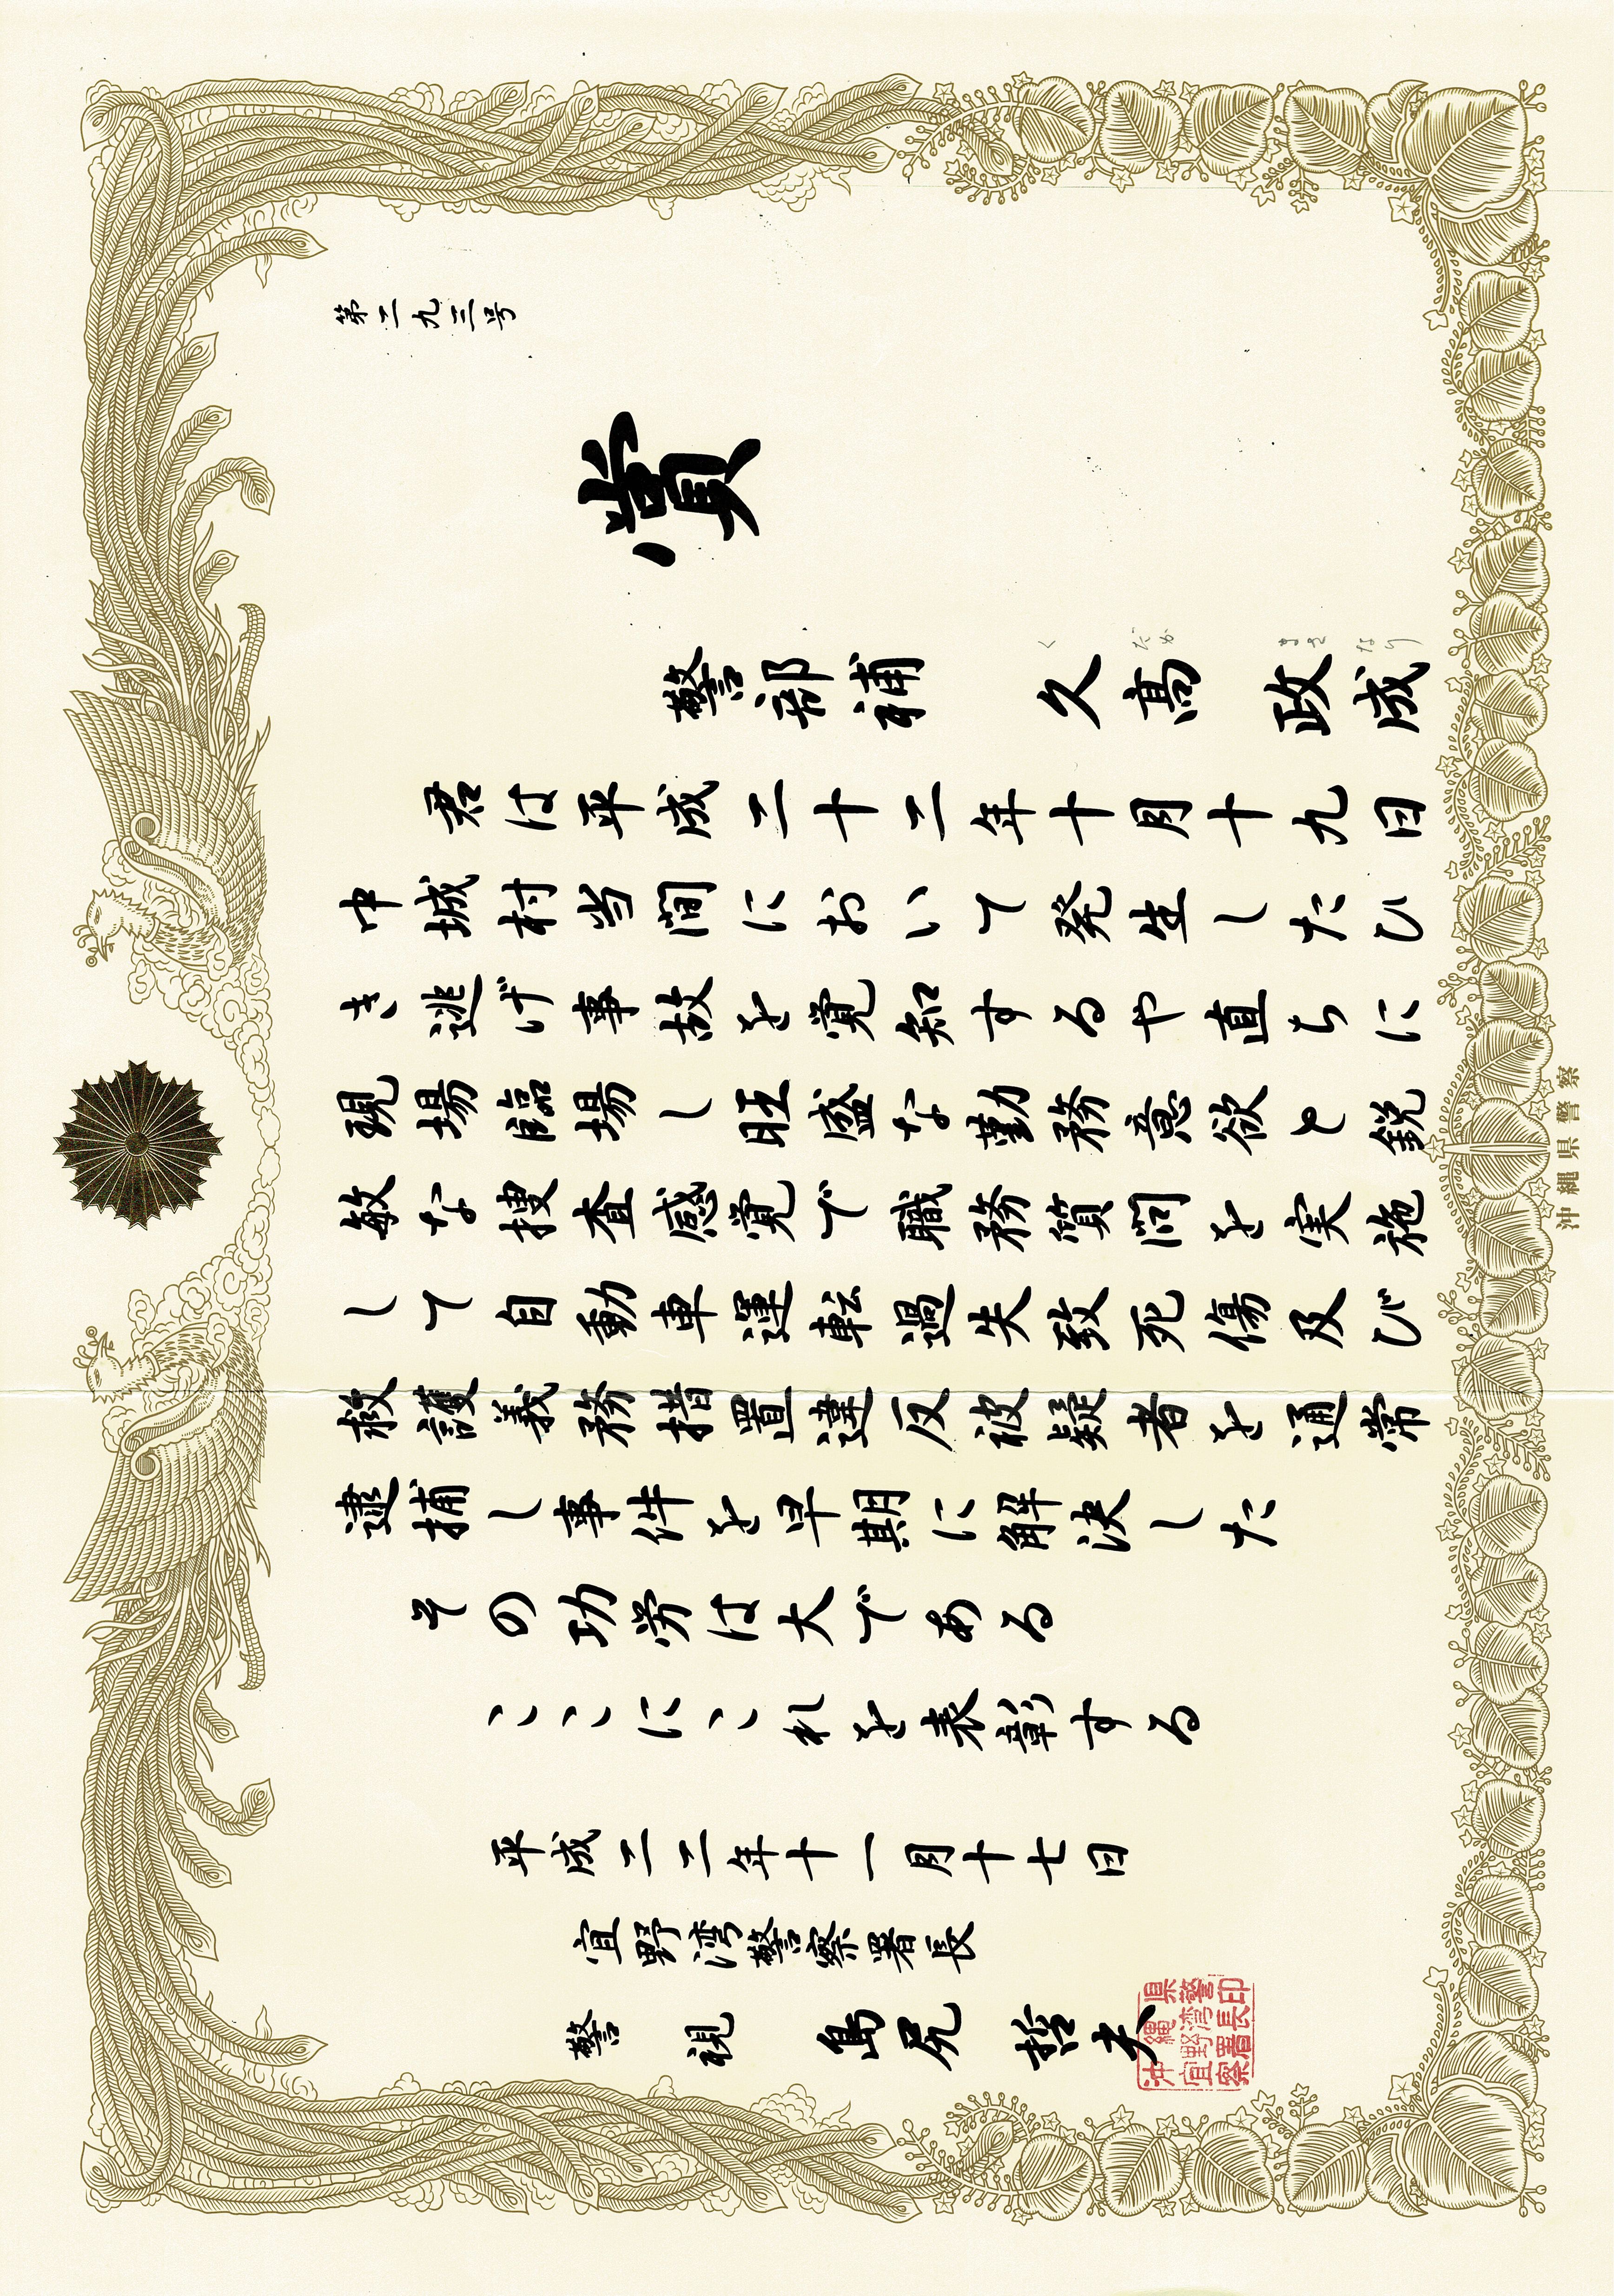 第二九三号
賞
警部補 久髙 政成
く だか まさ なり
君は平成二十二年十月十九日
中城村当間において発生したひ
き逃げ事故を覚知するや直ちに
現場臨場し旺盛な勤務意欲と鋭
敏な捜査感覚で職務質問を実施
して自動車運転過失致死傷及び
救護義務措置違反被疑者を通常
逮捕し事件を早期に解決した
その功労は大である
ここにこれを表彰する
平成二二年十一月十七日
宜野湾警察署長
警視 島尻 哲夫
沖縄県
宜野湾警
察署長印
沖縄県警察